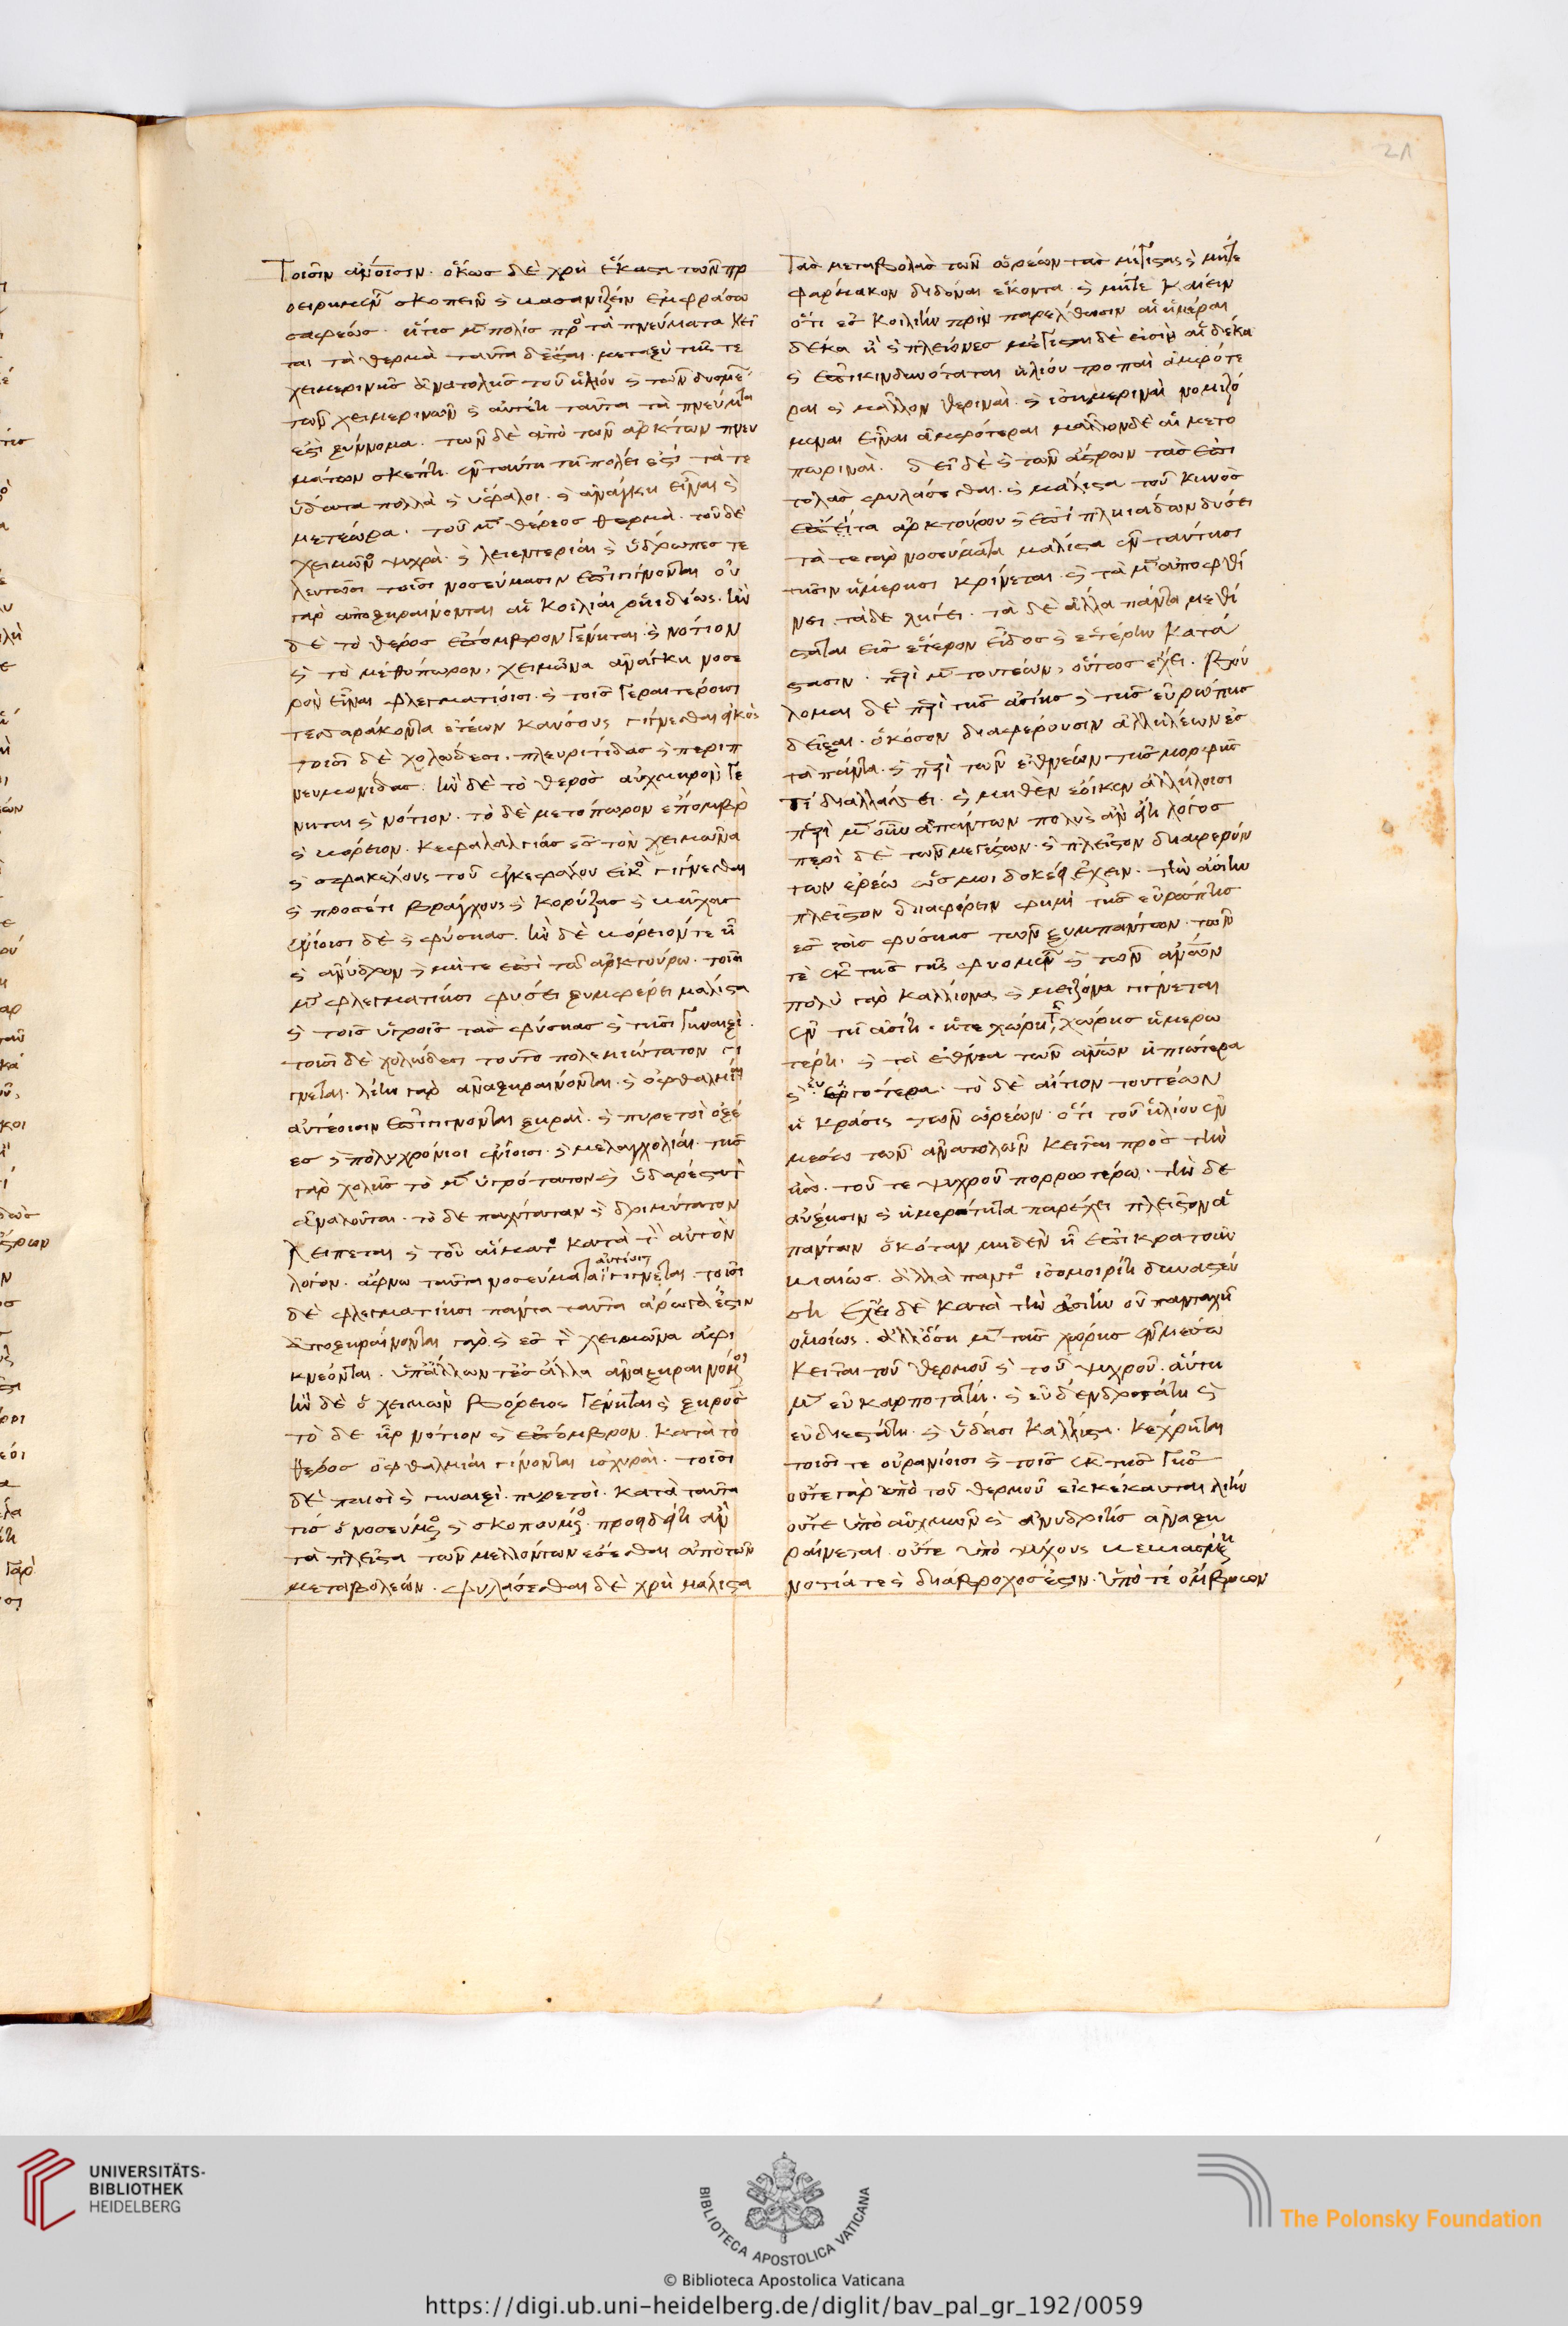 21
Τοισὶν ἀν̅οισιν. ὅκως δὲ χρὴ ἕκαστα τῶν πρ
οειρημέν σκοπεῖν καὶ βασανίζειν ἐγὼ φράσω
σαφέως. ἥτις μὲν πόλις πρὸς τὰ πνεύματα κεῖ
ται τὰ θερμὰ ταῦτα δ' ἐστι. μεταξὺ τῆς τε
χειμερινῆς ἀνατολῆς τοῦ ἡλίου καὶ τῶν δυσμέ
των χειμερινῶν καὶ αὐτέη ταῦτα τὰ πνεύματα
ἐστι ξύννομα. τῶν δὲ ἀπὸ τῶν ἄρκτων πνευ
μάτων σκέπη. ἐν ταύτη τῆ πόλει ἐστὶ τά τε
ὕδατα πολλὰ καὶ ὕφαλοι. καὶ ἀνάγκη εἶναι καὶ
μετέωρα. τοῦ μὲν θέρεος θερμὰ. τοῦ δὲ
χειμῶνος ψυχρὰ. καὶ λειεντερίαι καὶ ὕδρωπες τε
λευτῶσι τοῖσι νοσεύμασιν ἐπιγίνονται οὐ
γὰρ ἀποξηραίνονται αἱ κοιλίαι ῥηιδίως. ἢν
δὲ τὸ θέρος ἔπομβρον γένηται καὶ νότιον
καὶ τὸ μεθύπωρον, χειμῶνα ἀνάγκη νοσε
ρὸν εἶναι φλεγματίοισι. καὶ τοῖς γεραιτέροισι
τεσσαράκοντα ἐτέων καύσους γίγνεσθαι εἰκὸς
τοισὶ δὲ χολώδεσι. πλευρίτιδας καὶ περιπ
νευμονίδας. ἢν δὲ τὸ θερὸς αὐχμηρὸν γέ
νηται καὶ νότιον. τὸ δὲ μετόπωρον ἔπομβρ
καὶ βόρειον. κεφαλαλγίας ἐς τὸν χειμῶνα
καὶ σφακέλους τοῦ ἐγκεφάλου εἰκὸς γίγνεσθαι
καὶ προσέτι βράγχους καὶ κορύζας καὶ βῆχας
ἐνίοισι δὲ καὶ φύσηας. ἢν δὲ βόρειόν τε ἦ
καὶ ἄνυδρον καὶ μήτε ἐπὶ τῶ ἀρκτούρω. τοῖσι
μὲν φλεγματίησι φύσει ξυμφέρει μάλιστα
καὶ τοῖς ὑγροῖς τὰς φύσηας καὶ τῆσι γυναιξί.
τοισὶ δὲ χολώδεσι τοῦτο πολεμιώτατον γι
γνεται. λίην γὰρ ἀναξηραίνονται. καὶ ὀφθαλμίη
αὐτέοισιν ἐπιγίνονται ξηραὶ. καὶ πυρετοὶ ὀξέ
ες καὶ πολυχρόνιοι ἐνίοισι. καὶ μελαγχολίαι. τῆς
γὰρ χολῆς τὸ μὲν ὑγρότατον καὶ ὑδαρέστατ
ἀναλοῦται. τὸ δὲ παχύτατον καὶ δριμύτατον
λείπεται καὶ τοῦ αἵματος κατὰ τὸν αὐτὸν
λόγον. ἀφ' ὧν ταῦτα νοσεύματα αὐτέοισι γίγνεται. τοῖσι
δὲ φλεγματίησι πάντα ταῦτα ἀρωγά ἐστιν
ἀποξηραίνονται γὰρ καὶ ἐς τὸν χειμῶνα ἀφι
κνέονται. ὑπ' ἄλλων τὲς ἄλλα ἀναξηραινόμενοι
ἢν δὲ ὁ χειμὼν βόρειος γένηται καὶ ξηρὸς
τὸ δὲ ἦρ νότιον καὶ ἔπομβρον. κατὰ τὸ
θέρος ὀφθαλμίαι γίνονται ἰσχυραί. τοῖσι
δὲ παισὶ καὶ γυναιξὶ. πυρετοί. κατὰ ταῦτα
τις ὁ νοσεύμενος καὶ σκοπούμενος. προειδείη ἂν
τὰ πλεῖστα τῶν μελλόντων ἔσεσθαι ἀπὸ τῶν
μεταβολέων. φυλάσεσθαι δὲ χρὴ μάλιστα
Τὰς μεταβολὰς τῶν ὡρέων τὰς μεγίστας καὶ μήτε
φάρμακον διδόναι ἑκόντα. καὶ μήτε καίειν
ὅτι ἐς κοιλίην πρὶν παρέλθωσιν αἱ ἡμέραι
δέκα ἢ καὶ πλείονες μέγισται δὲ εἰσὶν αἱ δέκα
καὶ ἐπικινδυνόταται ἡλίου τροπαὶ ἀμφότε
ραι καὶ μᾶλλον θεριναὶ. καὶ ἰσημεριναὶ νομιζό
μεναι εἶναι ἀμφότεραι μᾶλλον δὲ αἱ μετο
πωριναὶ. δεῖ δὲ καὶ τῶν ἄστρων τὰς ἐπι
τολὰς φυλάσεσθαι. καὶ μάλιστα τοῦ κυνὸς
ἔπειτα ἀρκτούρου καὶ ἐπὶ πληιάδων δύσει
τά τε γὰρ νοσεύματα μάλιστα ἐν ταύτησι
τῆσιν ἡμέρησι κρίνεται. καὶ τὰ μὲν ἀποφθί
νει. τὰ δὲ λήγει. τὰ δὲ ἄλλα πάντα μεθί
σταται εἰς ἕτερον εἶδος καὶ ἑτέρην κατά
στασιν. περὶ μὲν τουτέων, οὕτως ἔχει. βού
λομαι δὲ περὶ τῆς ἀσίης καὶ τῆς εὐρώπης
δεῖξαι. ὁκόσον διαφέρουσιν ἀλλήλέων ἐς
τὰ πάντα. καὶ περὶ τῶν ἐθνέων τῆς μορφῆς
τί διαλλάσσει. καὶ μηθὲν ἔοικεν ἀλλήλοισι
περὶ μὲν οὖν ἁπάντων πολὺς ἂν εἴη λόγος
περὶ δὲ τῶν μεγίστων. καὶ πλεῖστον διαφερόν
των ἐρέω ὥς μοι δοκέει ἔχειν. τὴν ἀσίην
πλεῖστον διαφέρειν φημὶ τῆς εὐρώπης
ἐς τὰς φύσηας τῶν ξυμπάντων. τῶν
τὲ ἐκ τῆς γῆς φυομέν καὶ τῶν ἀν̅ων
πολὺ γὰρ καλλίονα καὶ μείζονα γίγνεται
ἐν τῆ ἀσίη. ἥτε χώρη τ χώρης ἡμερω
τέρη. καὶ τὰ ἔθνεα τῶν ἀν̅ων ἠπιώτερα
καὶ εὐεργοτέρα. τὸ δὲ αἴτιον τουτέων
ἡ κράσις τῶν ὡρέων. ὅτι τοῦ ἡλίου ἐν
μέσω τῶν ἀνατολῶν κεῖται πρὸς τὴν
ἠῶ. τοῦ τε ψυχροῦ πορρωτέρω. τὴν δὲ
αὔξησιν καὶ ἡμερότητα παρέχει πλεῖστον ἁ
πάντων ὁκόταν μηδὲν ἦ ἐπικρατοῦν
βιαίως. ἀλλὰ παντὸς ἰσομοιρίη δυναστεύ
ση ἔχει δὲ κατὰ τὴν ἀσίην οὐ πανταχῆ
ὁμοίως. ἀλλ' ὅση μὲν τᾶς χώρης ἐν μέσω
κεῖται τοῦ θερμοῦ καὶ τοῦ ψυχροῦ. αὕτη
μὲν εὐκαρποτάτη. καὶ εὐδενδροτάτη καὶ
εὐδιεστάτη. καὶ ὕδασι καλλίστα. κέχρηται
τοῖσί τε οὐρανίοισι καὶ τοῖς ἐκ τῆς γῆς
οὔτε γὰρ ὑπὸ τοῦ θερμοῦ ἐκκέκαυται λίην
οὔτε ὑπὸ αὐχμῶν καὶ ἀνυδρίης ἀναξη
ραίνεται. οὔτε ὑπὸ ψύχους βεβιασμένη
νοτία τε καὶ διάβροχος ἐστιν. ὑπό τε ὄμβρων
UNIVERSITÄTS-
BIBLIOTHEK
HEIDELBERG
BIBLIOTECA APOSTOLICA VATICANA
The Polonsky Foundation
© Biblioteca Apostolica Vaticana
https://digi.ub.uni-heidelberg.de/diglit/bav_pal_gr_192/0059